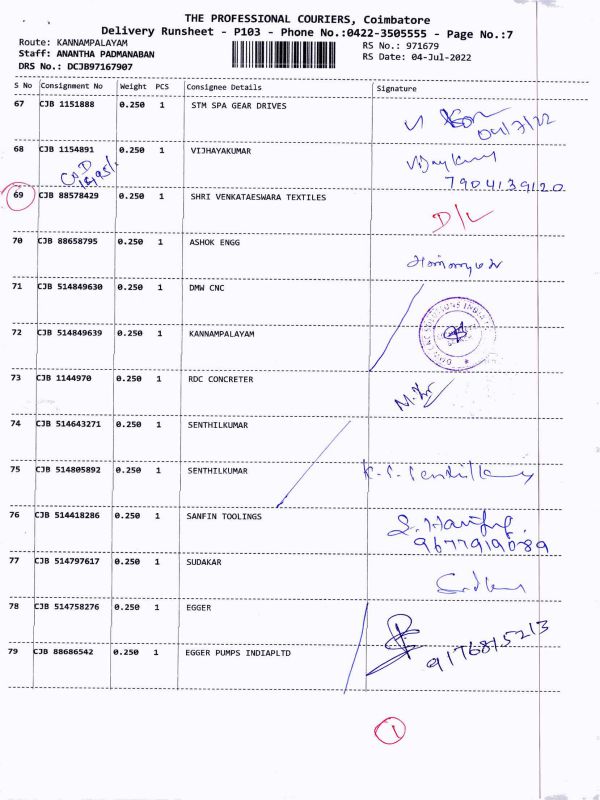 THE PROFESSIONAL COURIERS, Coimbatore
Delivery Runsheet - P103 - Phone No.:0422-3505555 - Page No.:7
Route: KANNAMPALAYAM
Staff: ANANTHA PADMANABAN
DRS No.: DCJB97167907
RS No.: 971679
RS Date: 04-Jul-2022
S No Consignment No Weight PCS Consignee Details Signature
67 CJB 1151888 0.250 1 STM SPA GEAR DRIVES
04/7/22
68 CJB 1154891 0.250 1 VIJHAYAKUMAR
Vijaykumar
7904139120
69 CJB 88578429 0.250 1 SHRI VENKATAESWARA TEXTILES
D/L
70 CJB 88658795 0.250 1 ASHOK ENGG
71 CJB 514849630 0.250 1 DMW CNC
72 CJB 514849639 0.250 1 KANNAMPALAYAM
73 CJB 1144970 0.250 1 RDC CONCRETER
74 CJB 514643271 0.250 1 SENTHILKUMAR
75 CJB 514805892 0.250 1 SENTHILKUMAR
76 CJB 514418286 0.250 1 SANFIN TOOLINGS
9677919089
77 CJB 514797617 0.250 1 SUDAKAR
78 CJB 514758276 0.250 1 EGGER
79 CJB 88686542 0.250 1 EGGER PUMPS INDIAPLTD
9176815213
1